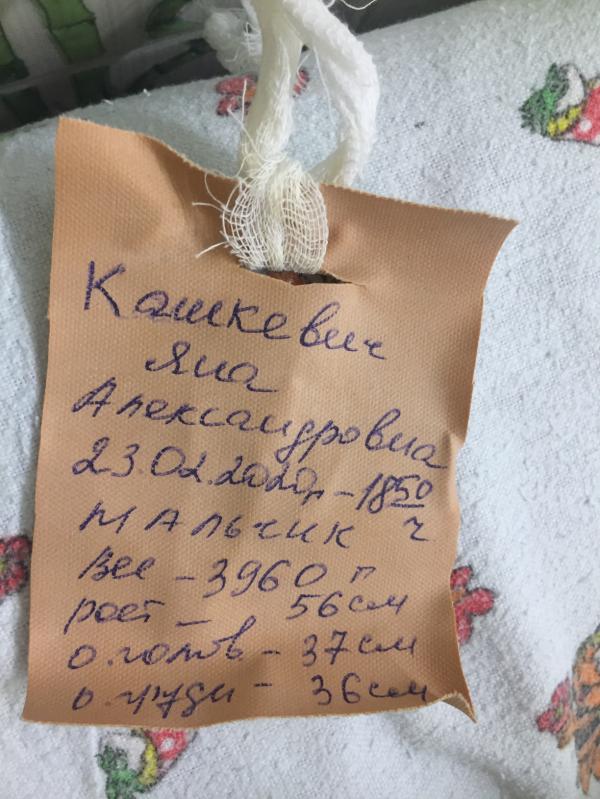 Кашкевич
Яна
Александровна
23.02.2020г – 18 50 ч
Мальчик
Вес – 3960 г
рост – 56 см
о. голов – 37 см
о. груди – 36 см